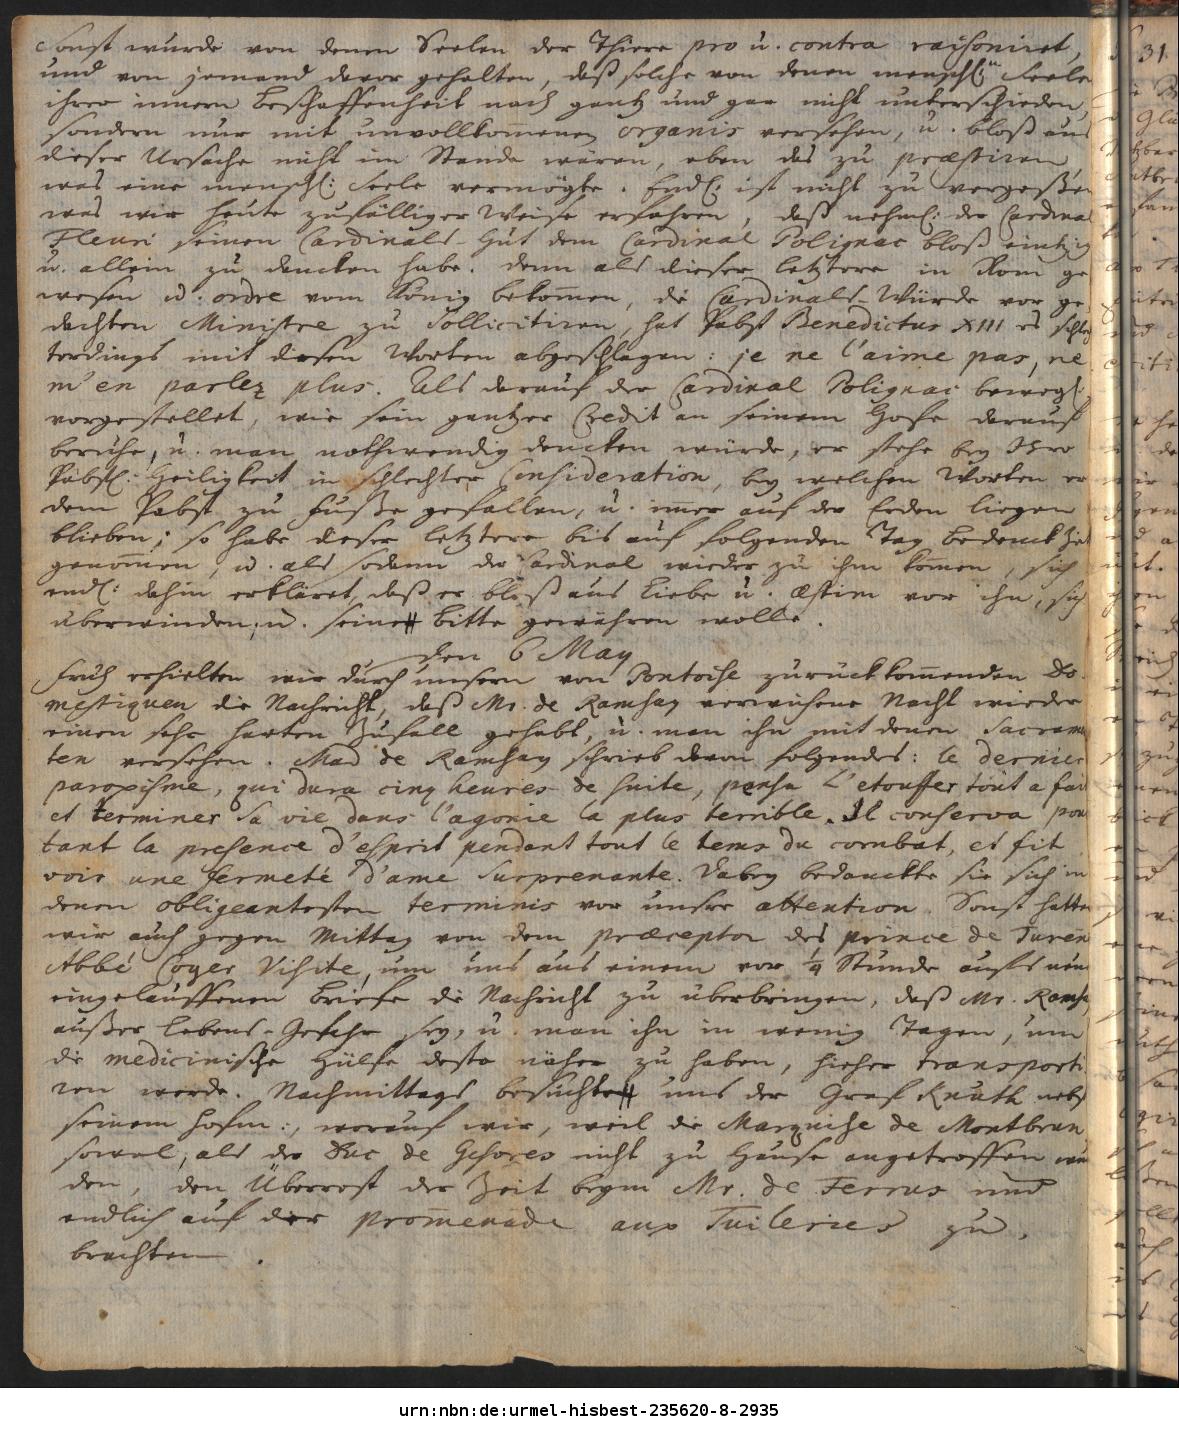 Sonst wurde von denen Seelen der Thiere pro u. contra raisoniret,
und von jemand davor gehalten, daß solche von denen menschl: Seelen
ihrer innern Beschaffenheit nach gantz und gar nicht unterschieden,
sondern nur mit unvollkom̄enen organis versehen, u. bloß aus
dieser Ursache nicht im Stande wären, eben das zu præstiren
was eine menschl: Seele vermögte. Endl: ist nicht zu vergeßen
was wir heute zufälliger Weise erfahren, daß nehml: der Cardinal
Fleuri seinen Cardinals-Hut dem Cardinal Polignac bloß eintzig
u. allein zu dancken habe. Denn als dieser letztere in Rom ge
wesen u. ordre vom König bekom̄en, die Cardinals-Würde vor ge
dachten Ministre zu sollicitiren, hat Pabst Benedictus XIII es schlech
terdings mit diesen Worten abgeschlagen: je ne l'aime pas, ne
m'en parlez plus. Als darauf der Cardinal Polignac bewegl:
vorgestellet, wie sein gantzer Credit an seinem Hofe darauf
beruhe, u. man nothwendig dencken würde, er stehe bey Ihro
Päbstl: Heiligkeit in schlechter Consideration, bey welchen Worten er
dem Pabst zu Fuße gefallen, u. im̄er auf der Erden liegen
blieben; so habe dieser letztere bis auf folgenden Tag Bedenckzeit
genom̄en, u. als sodann der Cardinal wieder zu ihm kom̄en, sich
endl: dahin erkläret, daß er bloß aus Liebe u. æstim vor ihn, sich
überwinden, u. seine Bitte gewähren wolle.
den 6 May
Früh erhielten wir durch unsern von Pontoise zurückkom̄enden Do
mestiquen die Nachricht, daß Mr. de Ramsay verwichene Nacht wieder
einen sehr harten Zufall gehabt, u. man ihn mit denen Sacramen
ten versehen. Mad de Ramsay schrieb davon folgendes: le dernier
paroxisme, qui dura cinq heures de suite, pensa L'etouffer tout a fait
et terminer sa vie dans l'agonie la plus terrible. Il conserva pour
tant la presence d'esprit pendant tout le tems du combat, et fit
voir une fermeté d'ame surprenante. Dabey bedanckte sie sich in
denen obligeantesten terminis vor unsre attention. Sonst hatten
wir auch gegen Mittag von dem præceptor des prince de Turenne
Abbé Coyer Visite, um uns aus einem vor ¼ Stunde aufs neue
eingelauffenen Briefe die Nachricht zu überbringen, daß Mr. Ramsay
außer Lebens-Gefahr sey, u. man ihn in wenig Tagen, um
die medicinische Hülfe desto näher zu haben, hieher transporti
ren werde. Nachmittags besuchte uns der Graf Knuth nebst
seinem Hofm:, worauf wir, weil die Marquise de Montbrun
sowol, als der Duc de Gesvres nicht zu Hause angetroffen wur
den, den Überrest der Zeit beym Mr. de Ferrus und
endlich auf der promenade aux Tuileries zu
brachten.
urn:nbn:de:urmel-hisbest-235620-8-2935